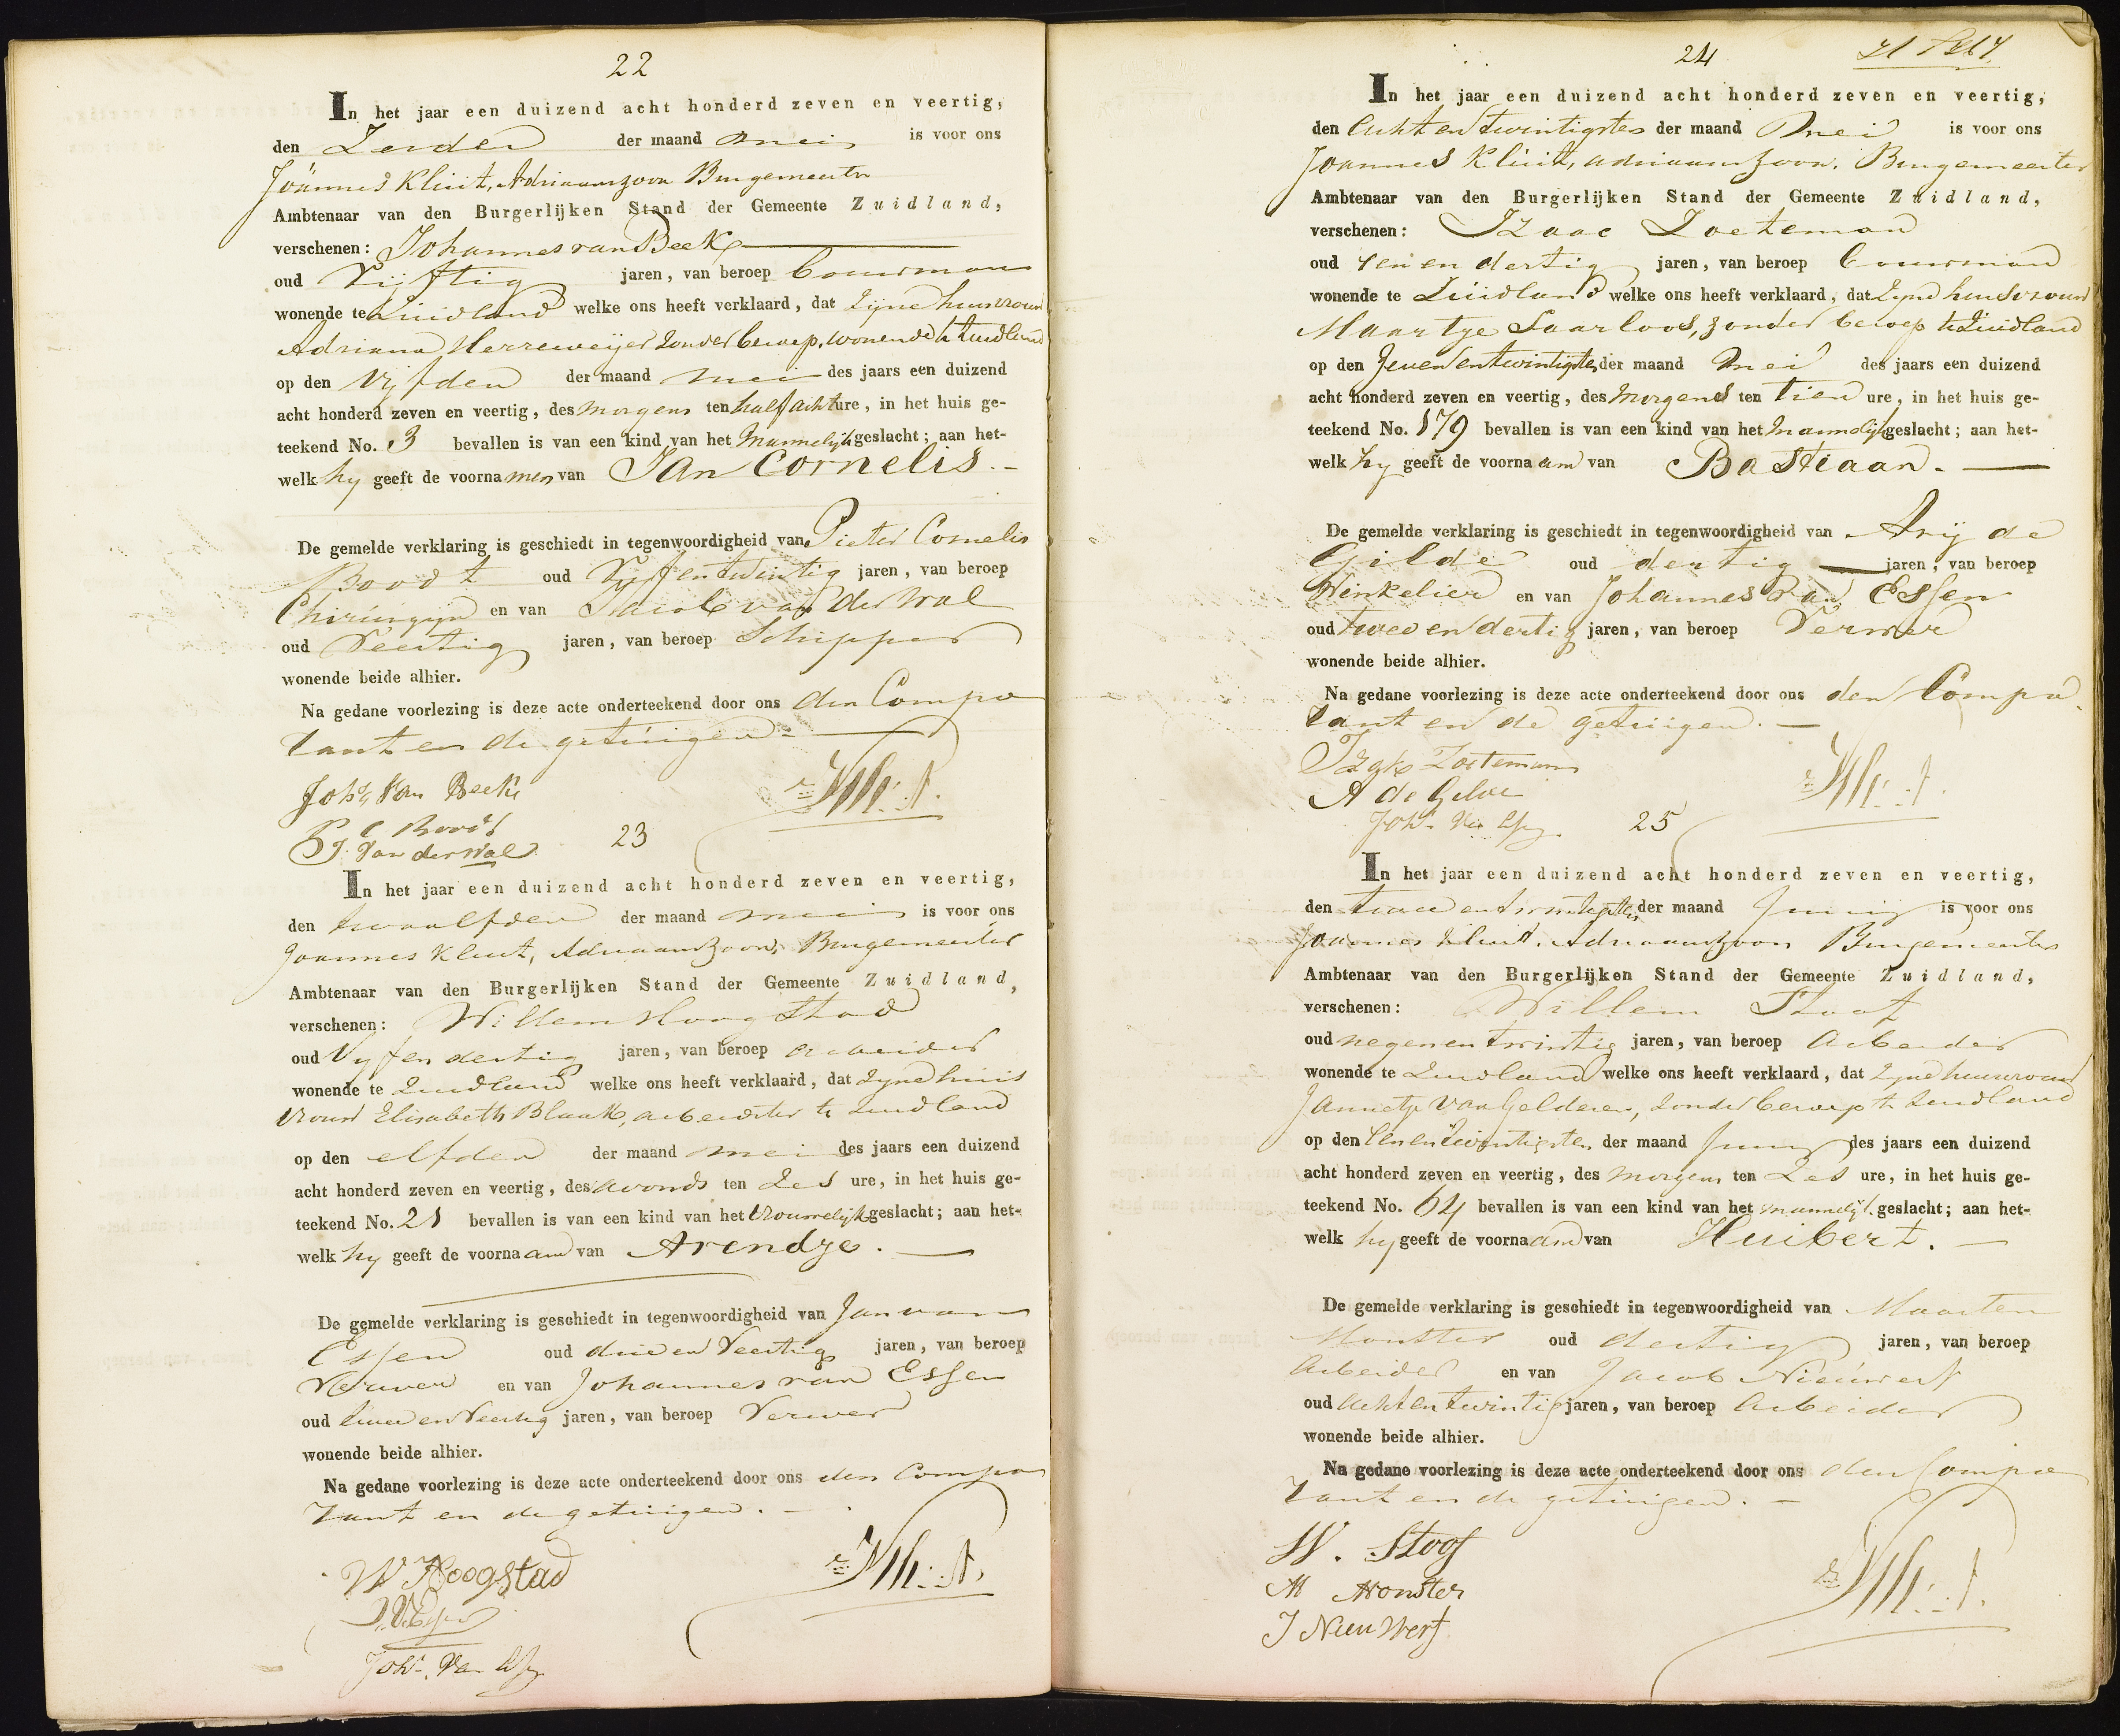 22
In het jaar een duizend acht honderd zeven en veertig,
den Zesden der maand mei is voor ons
Joännes Kluit, Adriaanszoon Burgemeester
Ambtenaar van den Burgerlijken Stand der Gemeente Zuidland,
verschenen: Johannes van Beek
oud Vijftig jaren, van beroep bouwman
wonende te Zuidland welke ons heeft verklaard, dat zijne huisvrouw
Adriana Herreweijer zonder beroep, wonende te Zuidland
op den vijfden der maand mei des jaars een duizend
acht honderd zeven en veertig, des morgens ten half acht ure, in het huis ge-
teekend No. 3 bevallen is van een kind van het mannelijk geslacht; aan het-
welk hy geeft de voornamen van Jan Cornelis.-
De gemelde verklaring is geschiedt in tegenwoordigheid van Pieter Cornelis
Boodt oud Vyfentwintig jaren, van beroep
Chirurgyn en van Jacob van der Wal
oud Veertig jaren, van beroep Schipper
wonende beide alhier.
Na gedane voorlezing is deze acte onderteekend door ons den Compa
rant en de getuigen.-
Johs Van Beek
P C Boodt
J. Van der Wal
23
In het jaar een duizend acht honderd zeven en veertig,
den twaalfden der maand mei is voor ons
Joannes Kluit, Adriaanszoon, Burgemeester
Ambtenaar van den Burgerlijken Stand der Gemeente Zuidland,
verschenen: Willem Hoogstad
oud Vyfendertig jaren, van beroep arbeider
wonende te Zuidland welke ons heeft verklaard, dat zyne huis
vrouw Elisabeth Blaak, arbeidster te Zuidland
op den elfden der maand mei des jaars een duizend
acht honderd zeven en veertig, des avonds ten Zes ure, in het huis ge-
teekend No. 21 bevallen is van een kind van het vrouwelijk geslacht; aan het-
welk hy geeft de voornaam van Arendje.
De gemelde verklaring is geschiedt in tegenwoordigheid van Jan van
Essen oud drie en Veertig jaren, van beroep
Verwer en van Johannes van Essen
oud twee en Veertig jaren, van beroep Verwer
wonende beide alhier.
Na gedane voorlezing is deze acte onderteekend door ons den Compa
rant en de getuigen.-
W Hoogstad
Johs. Van Essen
24
In het jaar een duizend acht honderd zeven en veertig,
den Acht en twintigsten der maand Mei is voor ons
Joannes Kluit, adriaanszoon, Burgemeester
Ambtenaar van den Burgerlijken Stand der Gemeente Zuidland,
verschenen: Izaac Zoeteman
oud een en dertig jaren, van beroep bouwman
wonende te Zuidland welke ons heeft verklaard, dat zyne huisvrouw
Maartje Saarloos, zonder beroep te Zuidland
op den Zeven entwintigsten der maand Mei des jaars een duizend
acht honderd zeven en veertig, des Morgens ten tien ure, in het huis ge-
teekend No. 179 bevallen is van een kind van het Mannelijk geslacht; aan het-
welk hy geeft de voornaam van Bastiaan.
De gemelde verklaring is geschiedt in tegenwoordigheid van Arij de
Gilde oud dertig jaren, van beroep
Winkelier en van Johannes van Essen
oud twee en dertig jaren, van beroep Verwer
wonende beide alhier.
Na gedane voorlezing is deze acte onderteekend door ons den Compa
rant en de getuigen.-
Izak Zoeteman
A de Gilde
Johs. Van Essen
25
In het jaar een duizend acht honderd zeven en veertig,
den twee entwintigsten der maand Junij is voor ons
Joannes Kluit, Adriaanszoon Burgemeester
Ambtenaar van den Burgerlijken Stand der Gemeente Zuidland,
verschenen: Willem Stoof
oud negenentwintig jaren, van beroep Arbeider
wonende te Zuidland welke ons heeft verklaard, dat zyne huisvrouw
Jannetje van Gelderen, zonder beroep te Zuidland
op den Eenentwintigsten der maand Junij des jaars een duizend
acht honderd zeven en veertig, des morgens ten Zes ure, in het huis ge-
teekend No. 64 bevallen is van een kind van het mannelijk geslacht; aan het-
welk hy geeft de voornaam van Huibert.
De gemelde verklaring is geschiedt in tegenwoordigheid van Maarten
Monster oud dertig jaren, van beroep
Arbeider en van Jacob Nieuwerf
oud Achtentwintig jaren, van beroep Arbeider
wonende beide alhier.
Na gedane voorlezing is deze acte onderteekend door ons den Compa
rant en de getuigen.-
W. Stoof
M Monster
J Nieuwerf